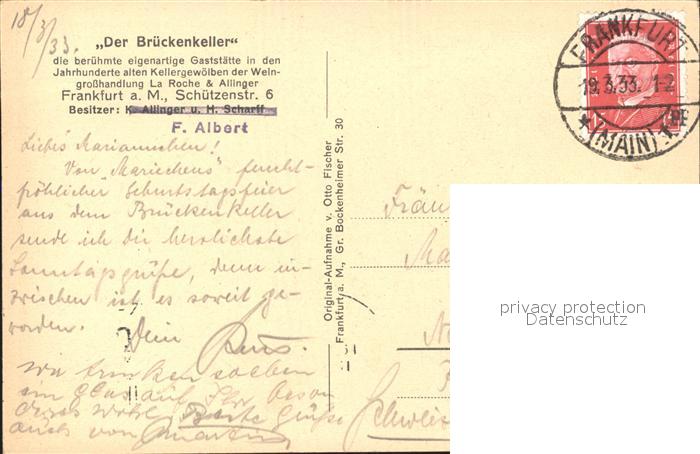 18/3/33.
„Der Brückenkeller“
die berühmte eigenartige Gaststätte in den
Jahrhunderte alten Kellergewölben der Wein-
großhandlung La Roche & Allinger
Frankfurt a. M., Schützenstr. 6
Besitzer: K. Allinger u. H. Scharff
F. Albert
Liebes Mariannchen!
Von „Mariechens“ feucht-
fröhlicher Geburtstagsfeier
aus dem Brückenkeller
sende ich dir herzlichste
Sonntagsgrüße, denn in-
zwischen ist es soweit ge-
worden. Dein
wir trinken soeben
ein Glas auf Ihr
Beste Grüße
auch von
Original-Aufnahme v. Otto Fischer
Frankfurt a. M., Gr. Bockenheimer Str. 30
FRANKFURT
19.3.33. 1-2
* (MAIN) 1
Fräu
Ma
Schweiz
privacy protection
Datenschutz